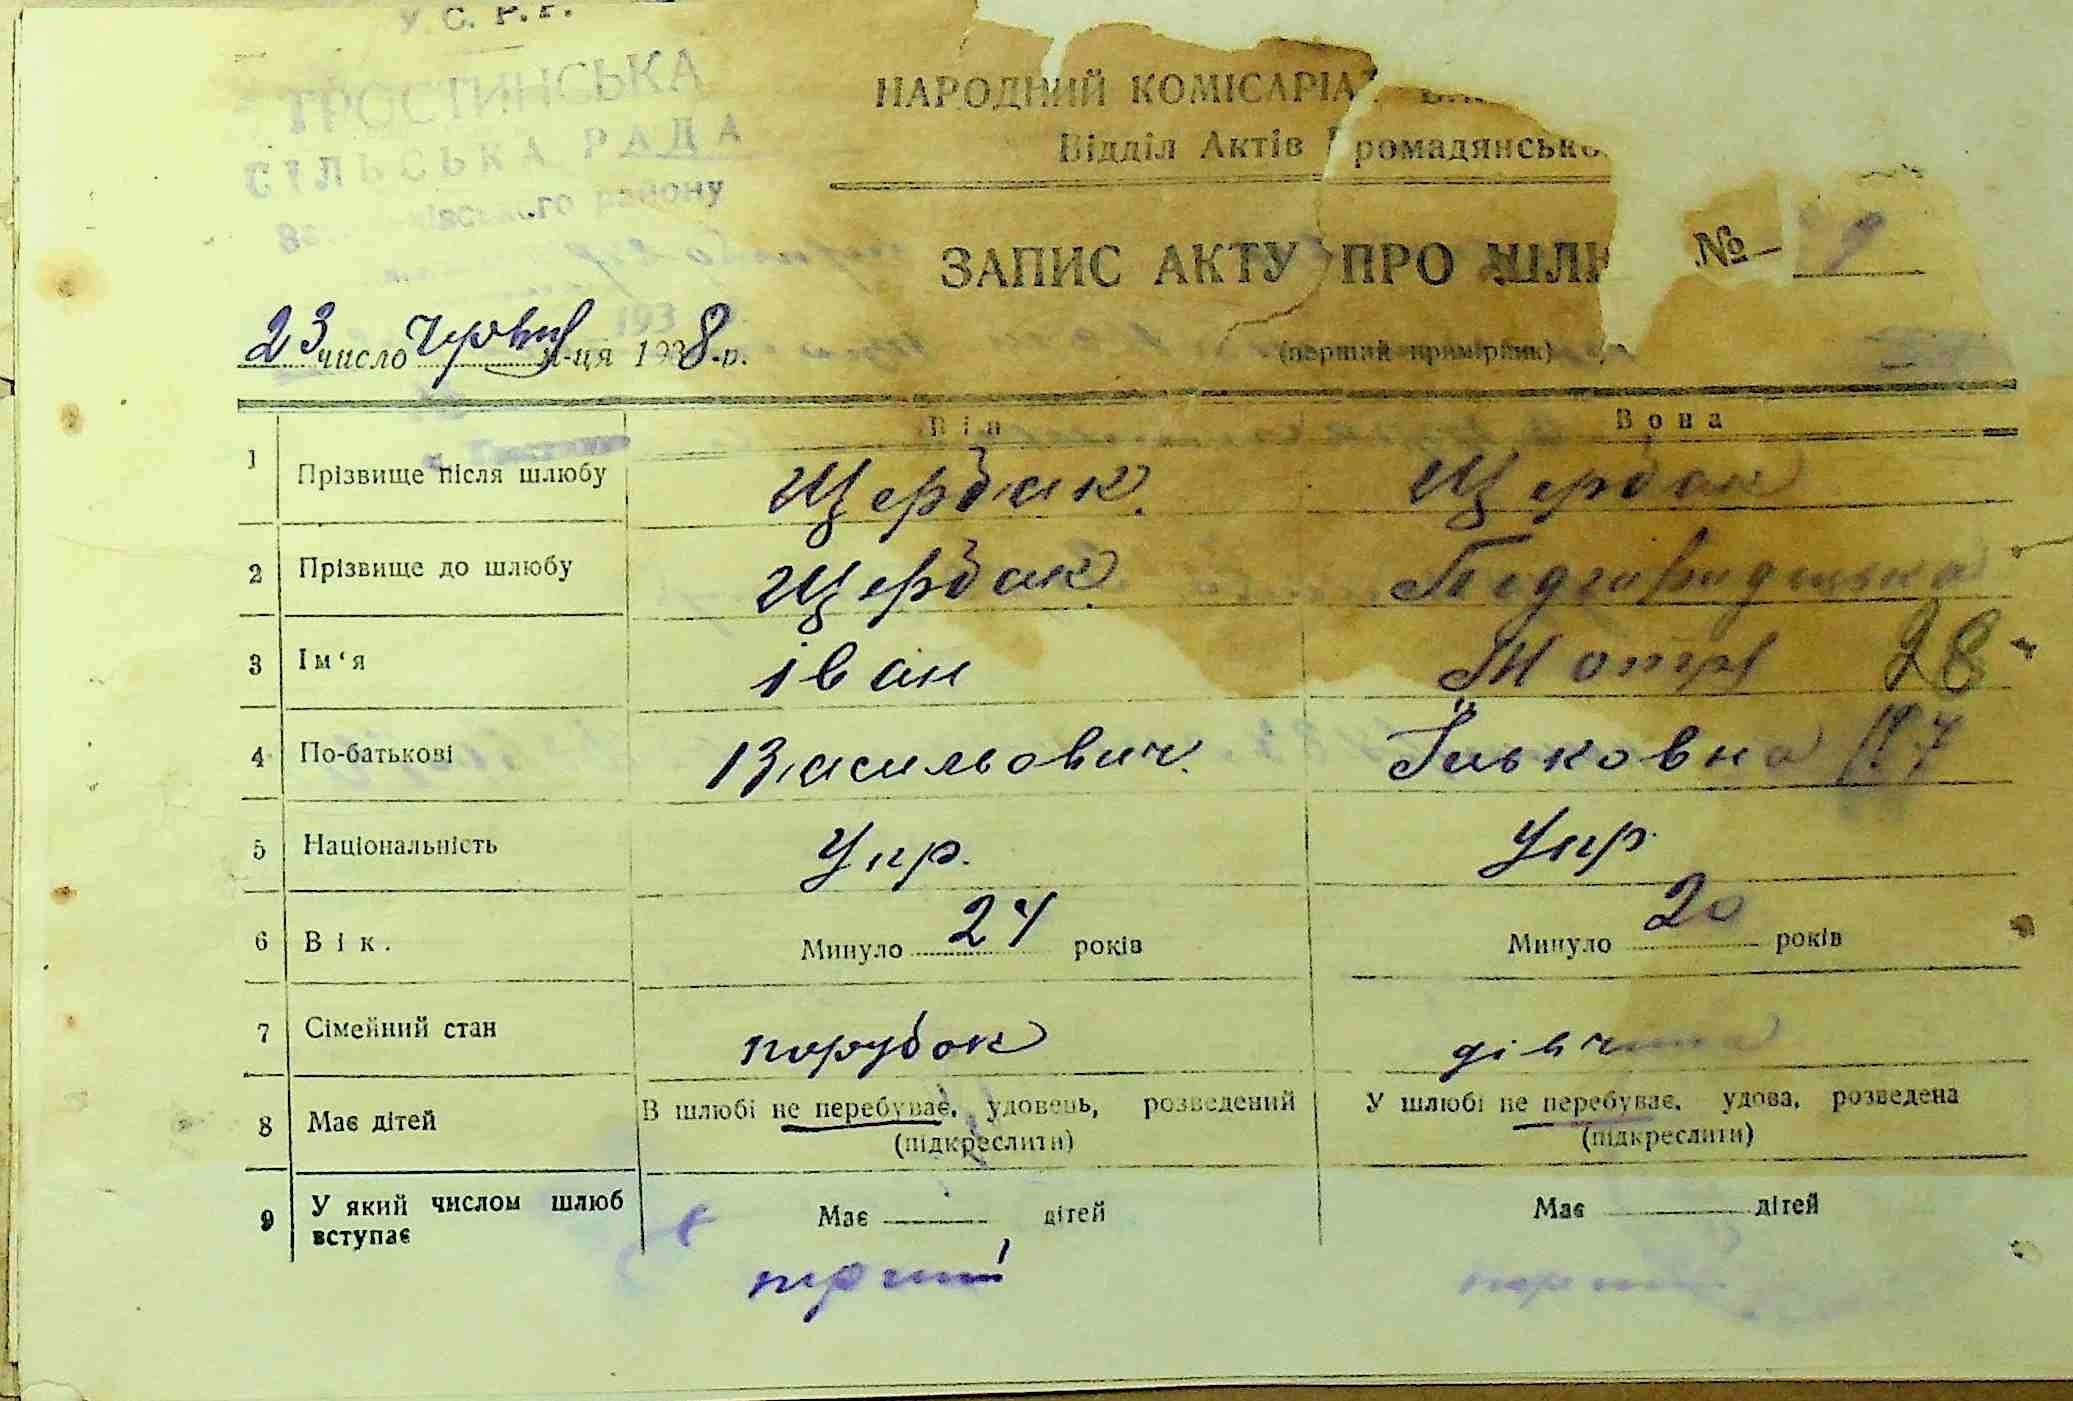 У. С. Р. Р.
ТРОСТИНСЬКА
СІЛЬСЬКА РАДА
району
193
НАРОДНИЙ КОМІСАРІАТ
Відділ Актів Громадянсько
ЗАПИС АКТУ ПРО ШЛЮ № 9
23 число червня м-ця 1938-р. (перший примірник)
Він Вона
1 Прізвище після шлюбу Щербак Щербак
2 Прізвище до шлюбу Щербак
3 Ім‘я Іван 28
4 По-батькові Васильович Ільковна
5 Національність Укр. Укр
6 Вік. Минуло 24 років Минуло 20 років
7 Сімейний стан парубок дівчина
8 Має дітей В шлюбі не перебуває, удовець, розведений У шлюбі не перебуває, удова, розведена
(підкреслити) (підкреслити)
9 У який числом шлюб вступає Має дітей Має дітей